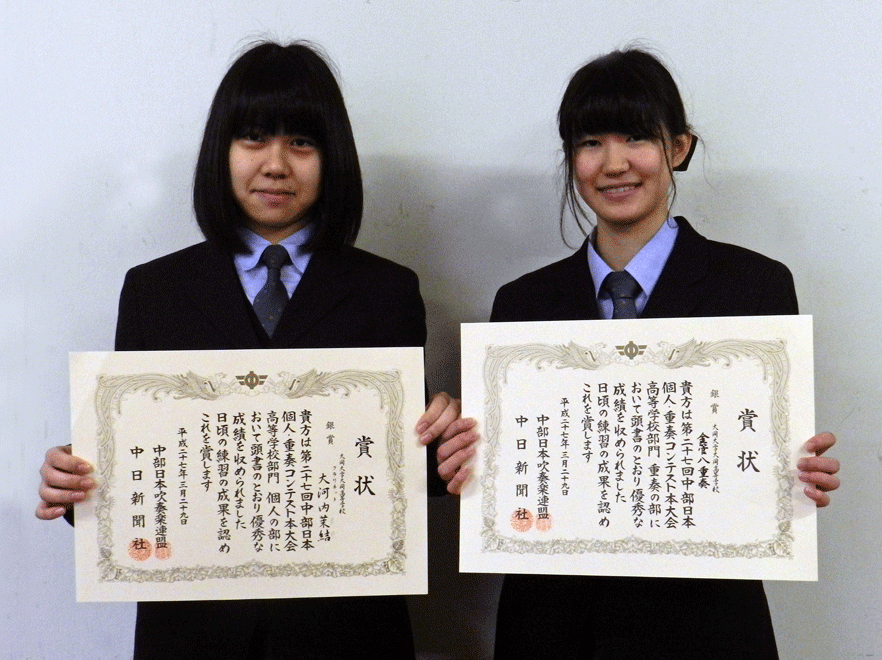 賞状
銀賞
大河内茉結
貴方は第二十七回中部日本
個人・重奏コンテスト本大会
高等学校部門 個人の部に
おいて頭書のとおり優秀な
成績を収められました
日頃の練習の成果を認め
これを賞します
平成二十七年三月二十九日
中部日本吹奏楽連盟
中日新聞社
賞状
銀賞
金管八重奏
貴方は第二十七回中部日本
個人・重奏コンテスト本大会
高等学校部門 重奏の部に
おいて頭書のとおり優秀な
成績を収められました
日頃の練習の成果を認め
これを賞します
平成二十七年三月二十九日
中部日本吹奏楽連盟
中日新聞社